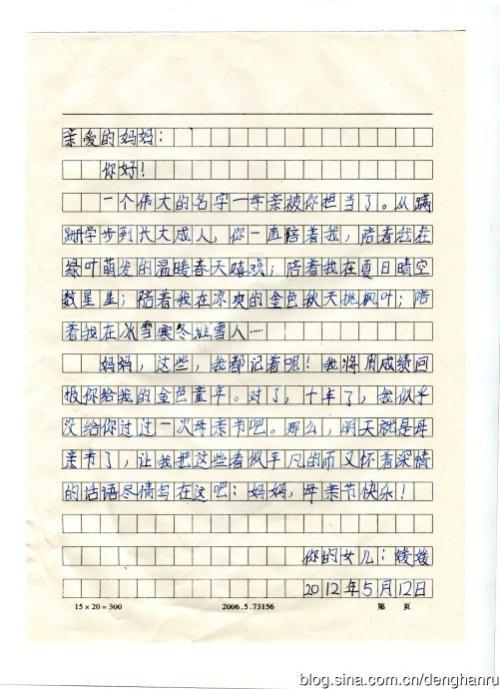 亲爱的妈妈：
你好！
一个伟大的名字一母亲被你担当了。从蹒
跚学步到长大成人，你一直陪着我，陪着我在
绿叶萌发的温暖春天嘻戏；陪着我在夏日晴空
数星星；陪着我在凉爽的金色秋天挑枫叶；陪
着我在冰雪寒冬堆雪人……
妈妈，这些，我都记着呢！我将用成绩回
报你给我的金色童年。对了，十年了，我似乎
没给你过过一次母亲节吧。那么，明天就是母
亲节了，让我把这些看似平凡的而又怀着深情
的话语尽情写在这吧：妈妈，母亲节快乐！
你的女儿：
2012年5月12日
15×20=300 2006.5.73156 第 页
blog.sina.com.cn/denghanru